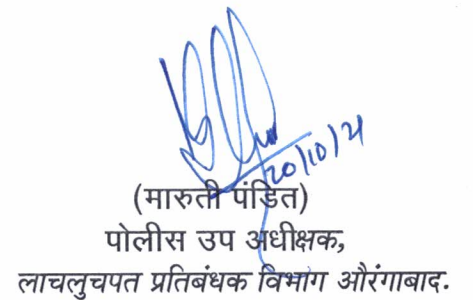 20/10/21
(मारुती पंडित)
पोलीस उप अधीक्षक,
लाचलुचपत प्रतिबंधक विभाग औरंगाबाद.